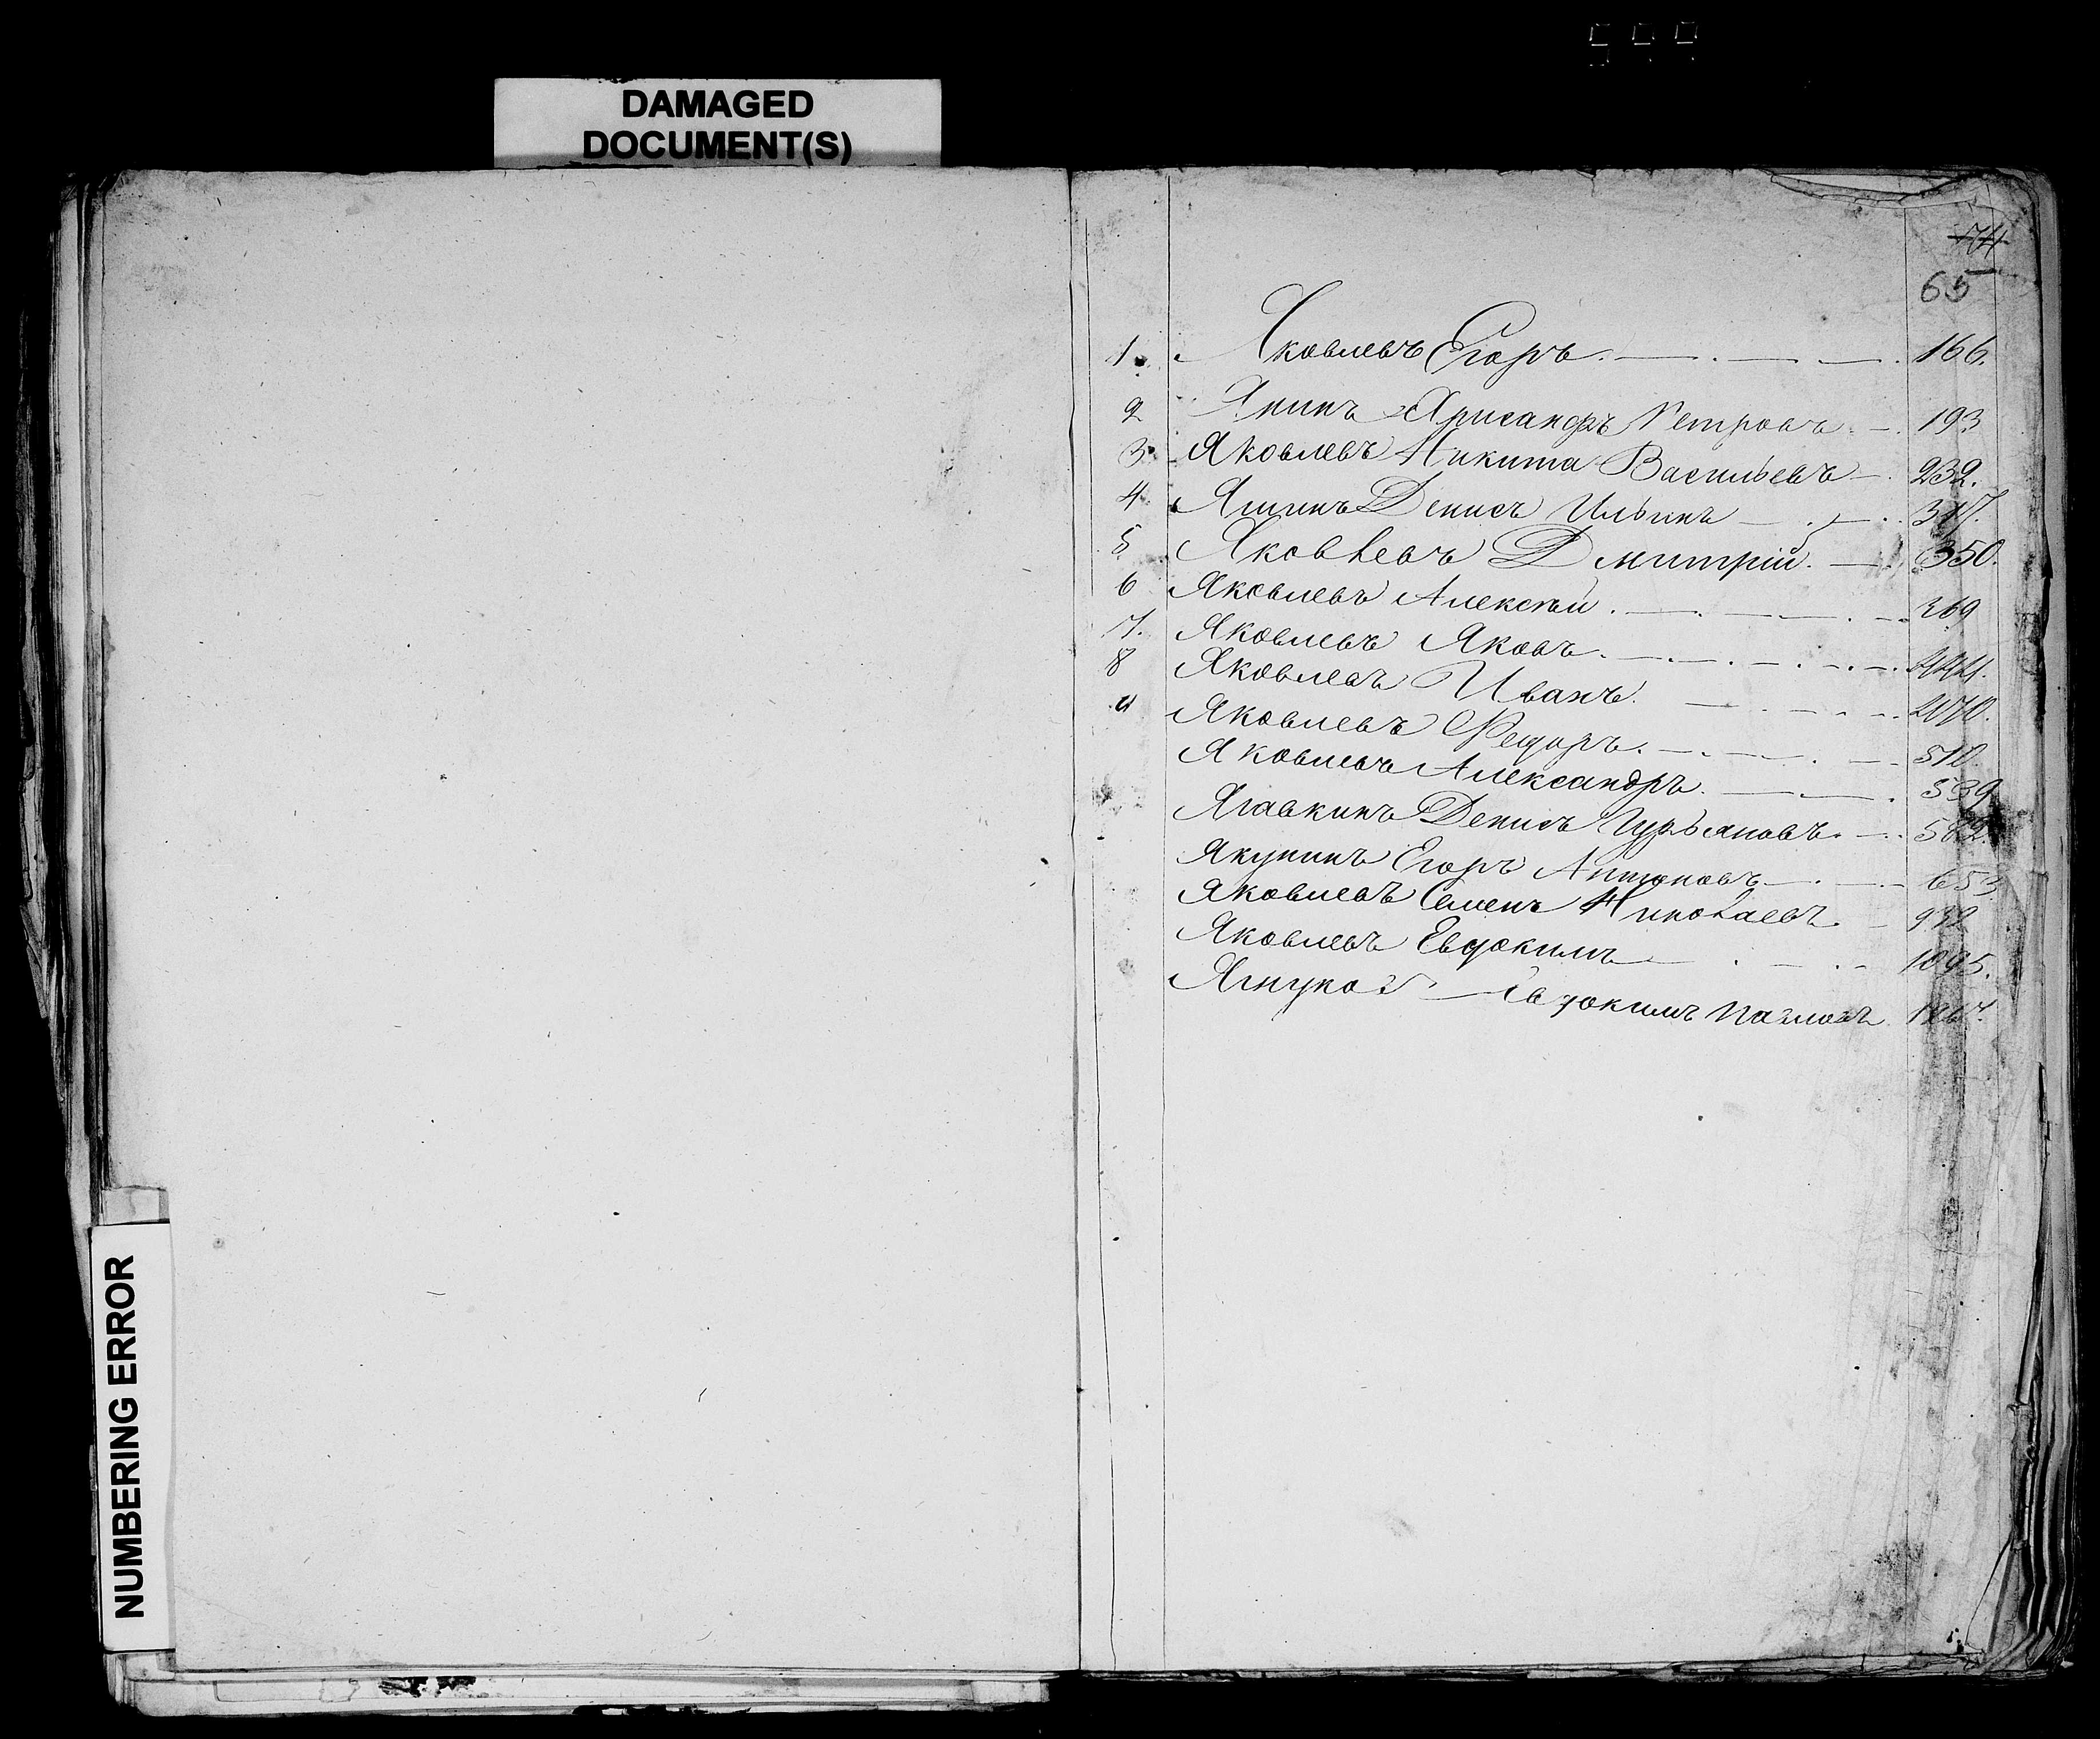 DAMAGED
DOCUMENT(S)
NUMBERING ERROR
74
65
1. Яковлевъ Егоръ. 166.
2 Янинъ Александръ Петровъ 193
3. Яковлевъ Никита Васильевъ 232.
4 Яшинъ Денисъ Ильинъ 317.
5 Яковлевъ Дмитрій. 350.
6 Яковлевъ Алексѣй. 369
7. Яковлевъ Яковъ. 444.
8 Яковлевъ Иванъ. 470.
9 Яковлевъ Федоръ. 510.
Яковлевъ Александръ. 539
Ягавкинъ Денисъ Гурьяновъ. 582.
Якунинъ Егоръ Антоновъ 653
Яковлевъ Семенъ Николаевъ. 932
Яковлевъ Евдокимъ 1095.
Евдокимъ Павловъ